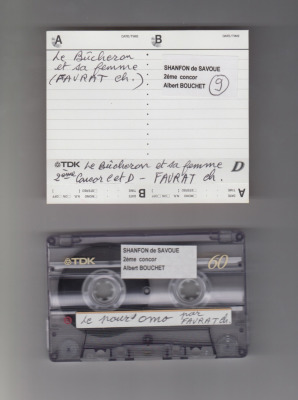 A
B
Le Bûcheron
et sa femme
(FAVRAT ch.)
SHANFON de SAVOUE
2ème concor
Albert BOUCHET
9
TDK Le Bûcheron et sa femme D
2ème Concor C et D - FAVRAT ch.
A
B
SHANFON de SAVOUE
2ème concor
Albert BOUCHET
TDK
60
Le pour l'omo par
FAVRAT ch